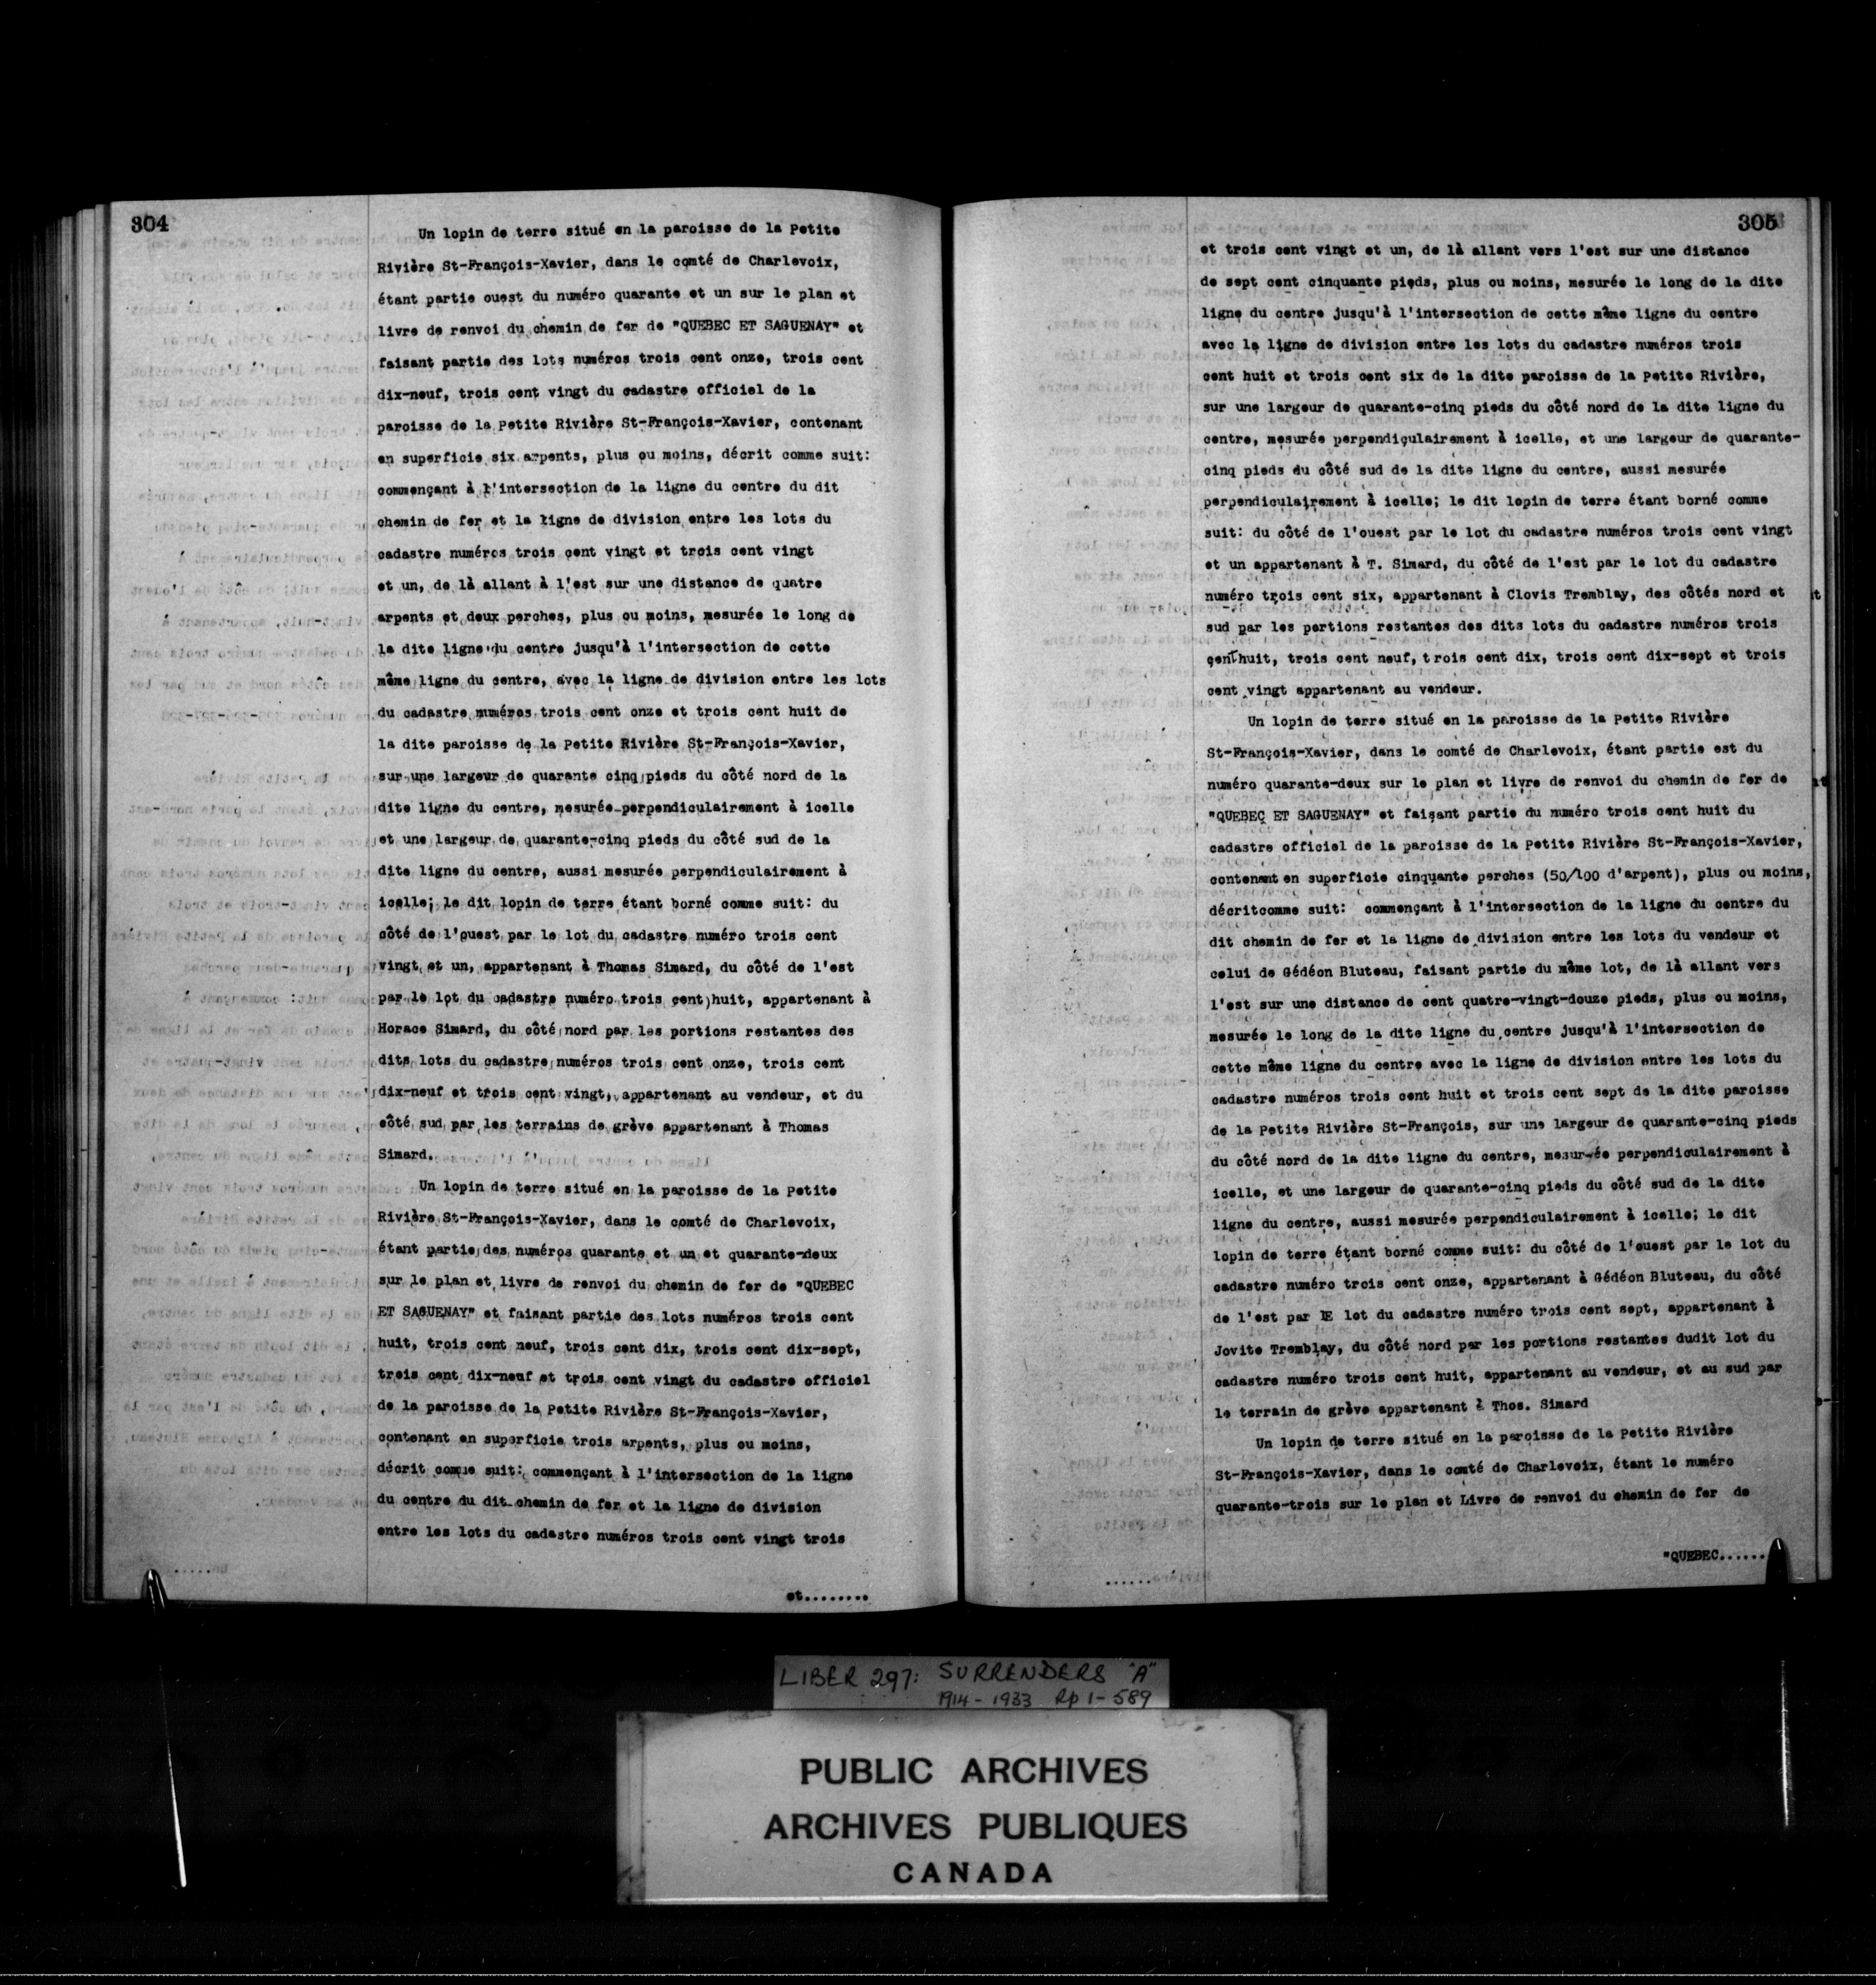 304
Un lopin de terre situé en la paroisse de la Petite
Rivière St-François-Xavier, dans le comté de Charlevoix,
étant partie ouest du numéro quarante et un sur le plan et
livre de renvoi du chemin de fer de "QUEBEC ET SAGUENAY" et
faisant partie des lots numéros trois cent onze, trois cent
dix-neuf, trois cent vingt du cadastre officiel de la
paroisse de la Petite Rivière St-François-Xavier, contenant
en superficie six arpents, plus ou moins, décrit comme suit:
commençant à l'intersection de la ligne du centre du dit
chemin de fer et la ligne de division entre les lots du
cadastre numéros trois cent vingt et trois cent vingt
et un, de là allant à l'est sur une distance de quatre
arpents et deux perches, plus ou moins, mesurée le long de
la dite ligne du centre jusqu'à l'intersection de cette
même ligne du centre, avec la ligne de division entre les lots
du cadastre numéros trois cent onze et trois cent huit de
la dite paroisse de la Petite Rivière St-François-Xavier,
sur une largeur de quarante cinq pieds du côté nord de la
dite ligne du centre, mesurée perpendiculairement à icelle
et une largeur de quarante-cinq pieds du côté sud de la
dite ligne du centre, aussi mesurée perpendiculairement à
icelle; le dit lopin de terre étant borné comme suit: du
côté de l'ouest par le lot du cadastre numéro trois cent
vingt et un, appartenant à Thomas Simard, du côté de l'est
par le lot du cadastre numéro trois cent huit, appartenant à
Horace Simard, du côté nord par les portions restantes des
dits lots du cadastre numéros trois cent onze, trois cent
dix-neuf et trois cent vingt, appartenant au vendeur, et du
côté sud par les terrains de grève appartenant à Thomas
Simard.
Un lopin de terre situé en la paroisse de la Petite
Rivière St-François-Xavier, dans le comté de Charlevoix,
étant partie des numéros quarante et un et quarante-deux
sur le plan et livre de renvoi du chemin de fer de "QUEBEC
ET SAGUENAY" et faisant partie des lots numéros trois cent
huit, trois cent neuf, trois cent dix, trois cent dix-sept,
trois cent dix-neuf et trois cent vingt du cadastre officiel
de la paroisse de la Petite Rivière St-François-Xavier,
contenant en superficie trois arpents, plus ou moins,
décrit comme suit: commençant à l'intersection de la ligne
du centre du dit chemin de fer et la ligne de division
entre les lots du cadastre numéros trois cent vingt trois
et........
305
et trois cent vingt et un, de là allant vers l'est sur une distance
de sept cent cinquante pieds, plus ou moins, mesurée le long de la dite
ligne du centre jusqu'à l'intersection de cette même ligne du centre
avec la ligne de division entre les lots du cadastre numéros trois
cent huit et trois cent six de la dite paroisse de la Petite Rivière,
sur une largeur de quarante-cinq pieds du côté nord de la dite ligne du
centre, mesurée perpendiculairement à icelle, et une largeur de quarante-
cinq pieds du côté sud de la dite ligne du centre, aussi mesurée
perpendiculairement à icelle; le dit lopin de terre étant borné comme
suit: du côté de l'ouest par le lot du cadastre numéros trois cent vingt
et un appartenant à T. Simard, du côté de l'est par le lot du cadastre
numéro trois cent six, appartenant à Clovis Tremblay, des côtés nord et
sud par les portions restantes des dits lots du cadastre numéros trois
cent huit, trois cent neuf, trois cent dix, trois cent dix-sept et trois
cent vingt appartenant au vendeur.
Un lopin de terre situé en la paroisse de la Petite Rivière
St-François-Xavier, dans le comté de Charlevoix, étant partie est du
numéro quarante-deux sur le plan et livre de renvoi du chemin de fer de
"QUEBEC ET SAGUENAY" et faisant partie du numéro trois cent huit du
cadastre officiel de la paroisse de la Petite Rivière St-François-Xavier,
contenant en superficie cinquante perches (50/100 d'arpent), plus ou moins,
décritcomme suit: commençant à l'intersection de la ligne du centre du
dit chemin de fer et la ligne de division entre les lots du vendeur et
celui de Gédéon Bluteau, faisant partie du même lot, de là allant vers
l'est sur une distance de cent quatre-vingt-douze pieds, plus ou moins,
mesurée le long de la dite ligne du centre jusqu'à l'intersection de
cette même ligne du centre avec la ligne de division entre les lots du
cadastre numéros trois cent huit et trois cent sept de la dite paroisse
de la Petite Rivière St-François, sur une largeur de quarante-cinq pieds
du côté nord de la dite ligne du centre, mesur-ée perpendiculairement à
icelle, et une largeur de quarante-cinq pieds du côté sud de la dite
ligne du centre, aussi mesurée perpendiculairement à icelle; le dit
lopin de terre étant borné comme suit: du côté de l'ouest par le lot du
cadastre numéro trois cent onze, appartenant à Gédéon Bluteau, du côté
de l'est par lE lot du cadastre numéro trois cent sept, appartenant à
Jovite Tremblay, du côté nord par les portions restantes dudit lot du
cadastre numéro trois cent huit, appartenant au vendeur, et au sud par
le terrain de grève appartenant à Thos. Simard
Un lopin de terre situé en la paroisse de la Petite Rivière
St-François-Xavier, dans le comté de Charlevoix, étant le numéro
quarante-trois sur le plan et Livre de renvoi du chemin de fer de
"QUEBEC......
LIBER 297: SURRENDERS "A"
1914 - 1933 Rp 1 - 589
PUBLIC ARCHIVES
ARCHIVES PUBLIQUES
CANADA